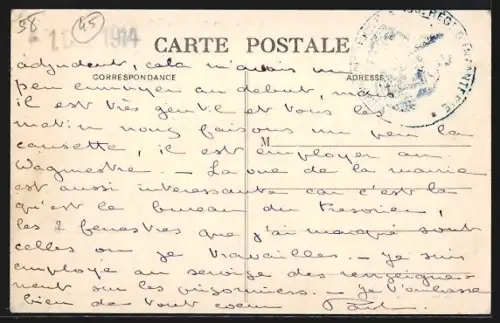 58
45
1914
CARTE POSTALE
CORRESPONDANCE
ADRESSE
RÉG D'INFANTERIE
M
adjudent, cela m'avais un
peu ennuyer au debut, mais
il est très gentil et tous les
matin nous faisons un peu la
causette, il est employer au
Wagmestre. - La vue de la mairie
est aussi interessante car c'est la
qu'est le bureau du Tresorier,
les 2 fenestres que j'ai marqué sont
celles ou je travailles. - Je suis
employé au service des renseigne-
ment sur les prisonniers. - Je t'embrasse
bien de tout coeur